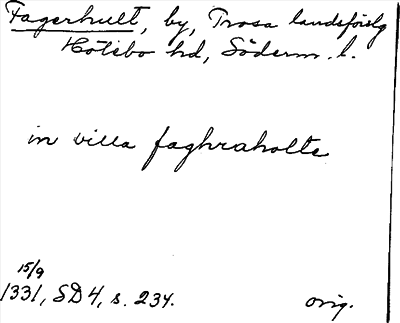 Fagerhult, by, Trosa landsförslg
Hölebo hd, Söderm. l.
in villa faghraholte
15/9
1331, SD 4, s. 234.
orig.